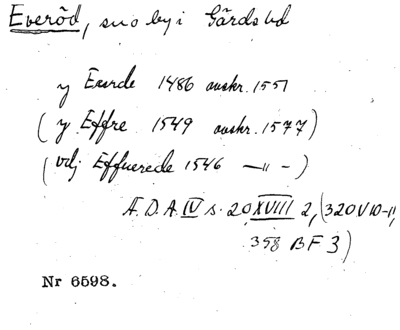 Everöd, sno by i Gärds hd
y Efunde 1486 avskr. 1551
(y Effre 1549 avskr. 1577)
(vdj Effuerede 1546 —"—)
Æ.D.A. IV s. 20, XVIII 2, (320 V 10-11,
358 B F 3)
Nr 6598.